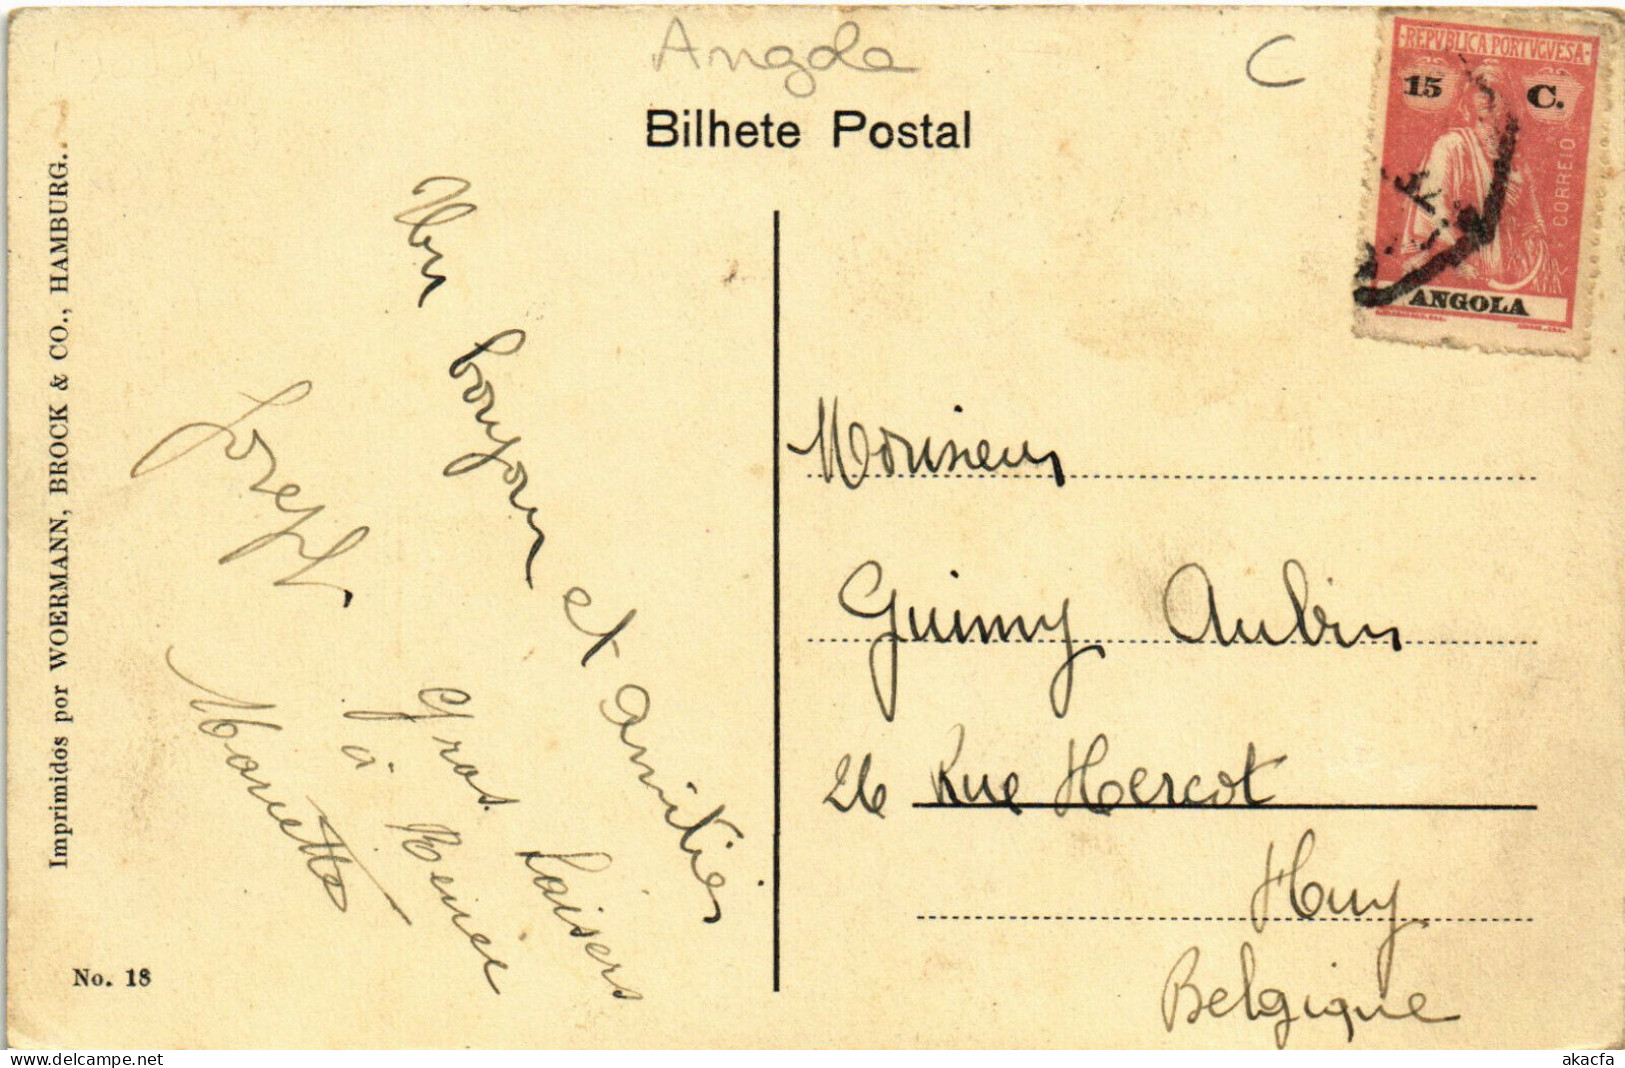 Angola
C
Bilhete Postal
REPVBLICA PORTVGVESA
15 C.
CORREIO
ANGOLA
Un bonjour et amitiés
Gros baisers
à Reine
Joseph
Mariette
Monsieur
Guimy Aubin
26 Rue Hercot
Huy
Belgique
Imprimidos por WOERMANN, BROCK & CO., HAMBURG.
No. 18
delcampe.net
akacfa